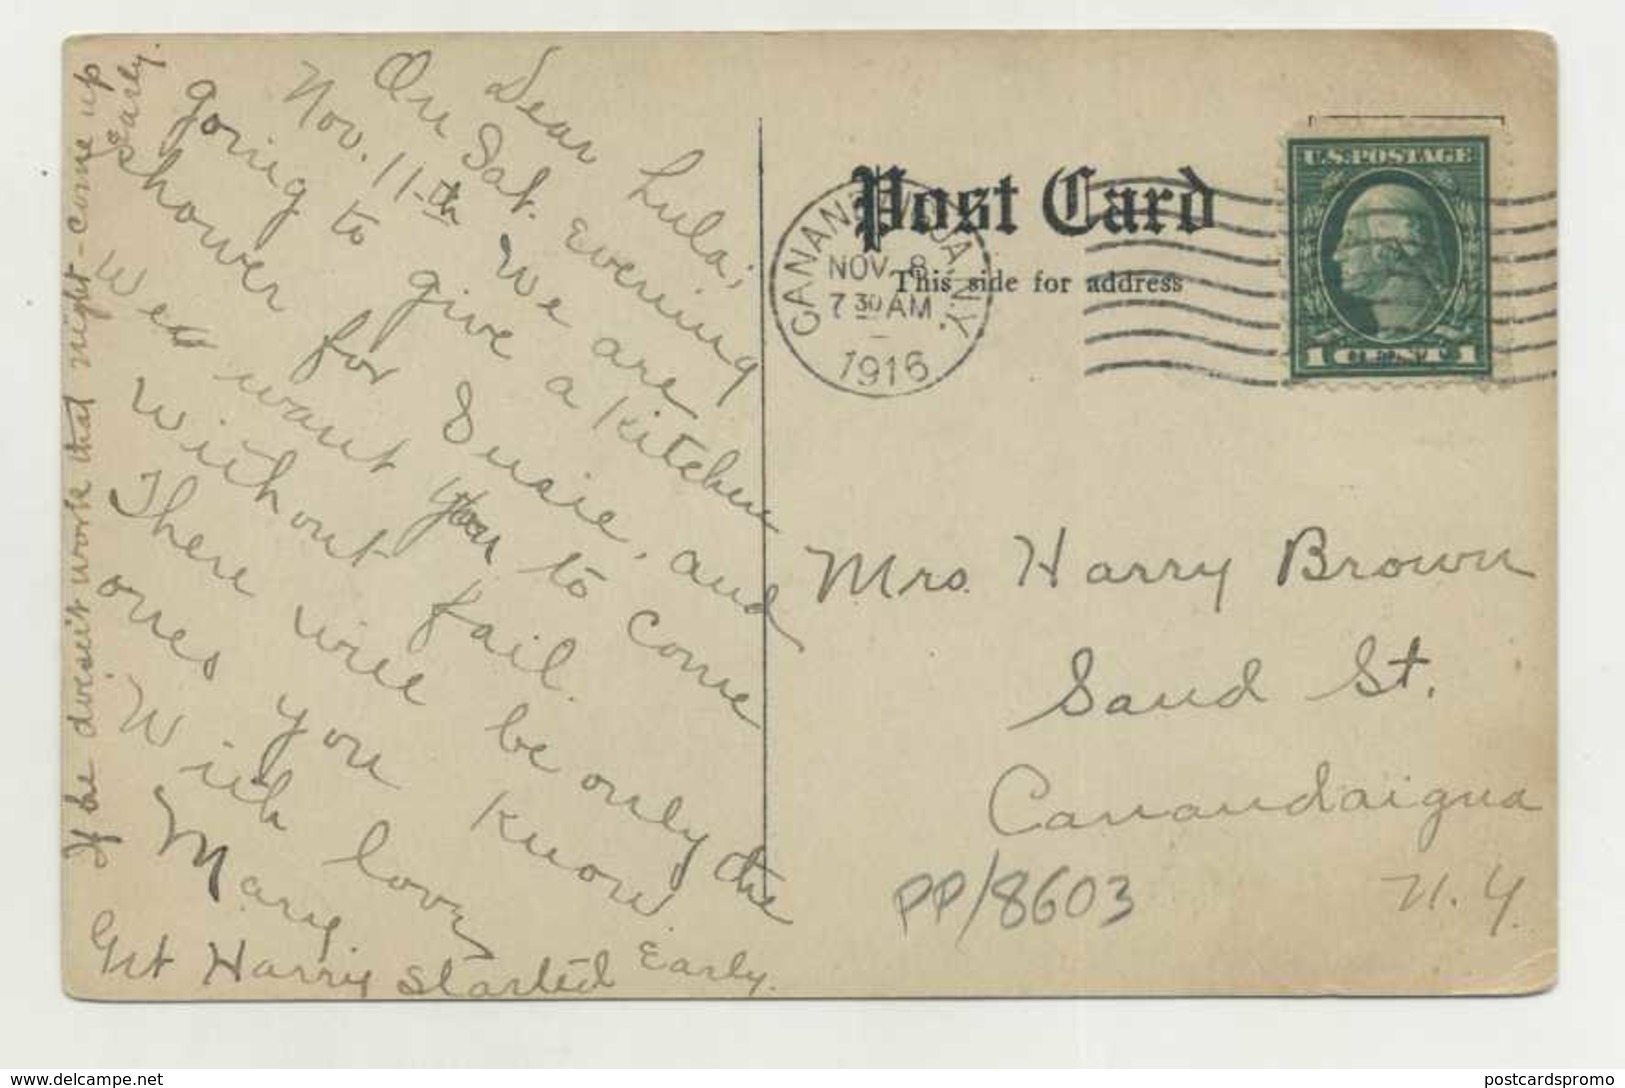 Dear Lula;
On Sat. Evening
Nov. 11-th We are
going to give a Kitchen
shower for Susie, and
We want you to come
without fail.
There will be only the
ones you know
With love,
Mary.
Get Harry started Early.
If he doesn't work that night - come up
Early.
Post Card
This side for address
CANANDAIGUA, N.Y.
NOV 8
7 30 AM
1916
U.S. POSTAGE
1 CENT 1
Mrs. Harry Brown
Sand St.
Canandaigua
N. Y.
PP/8603
www.delcampe.net
postcardspromo